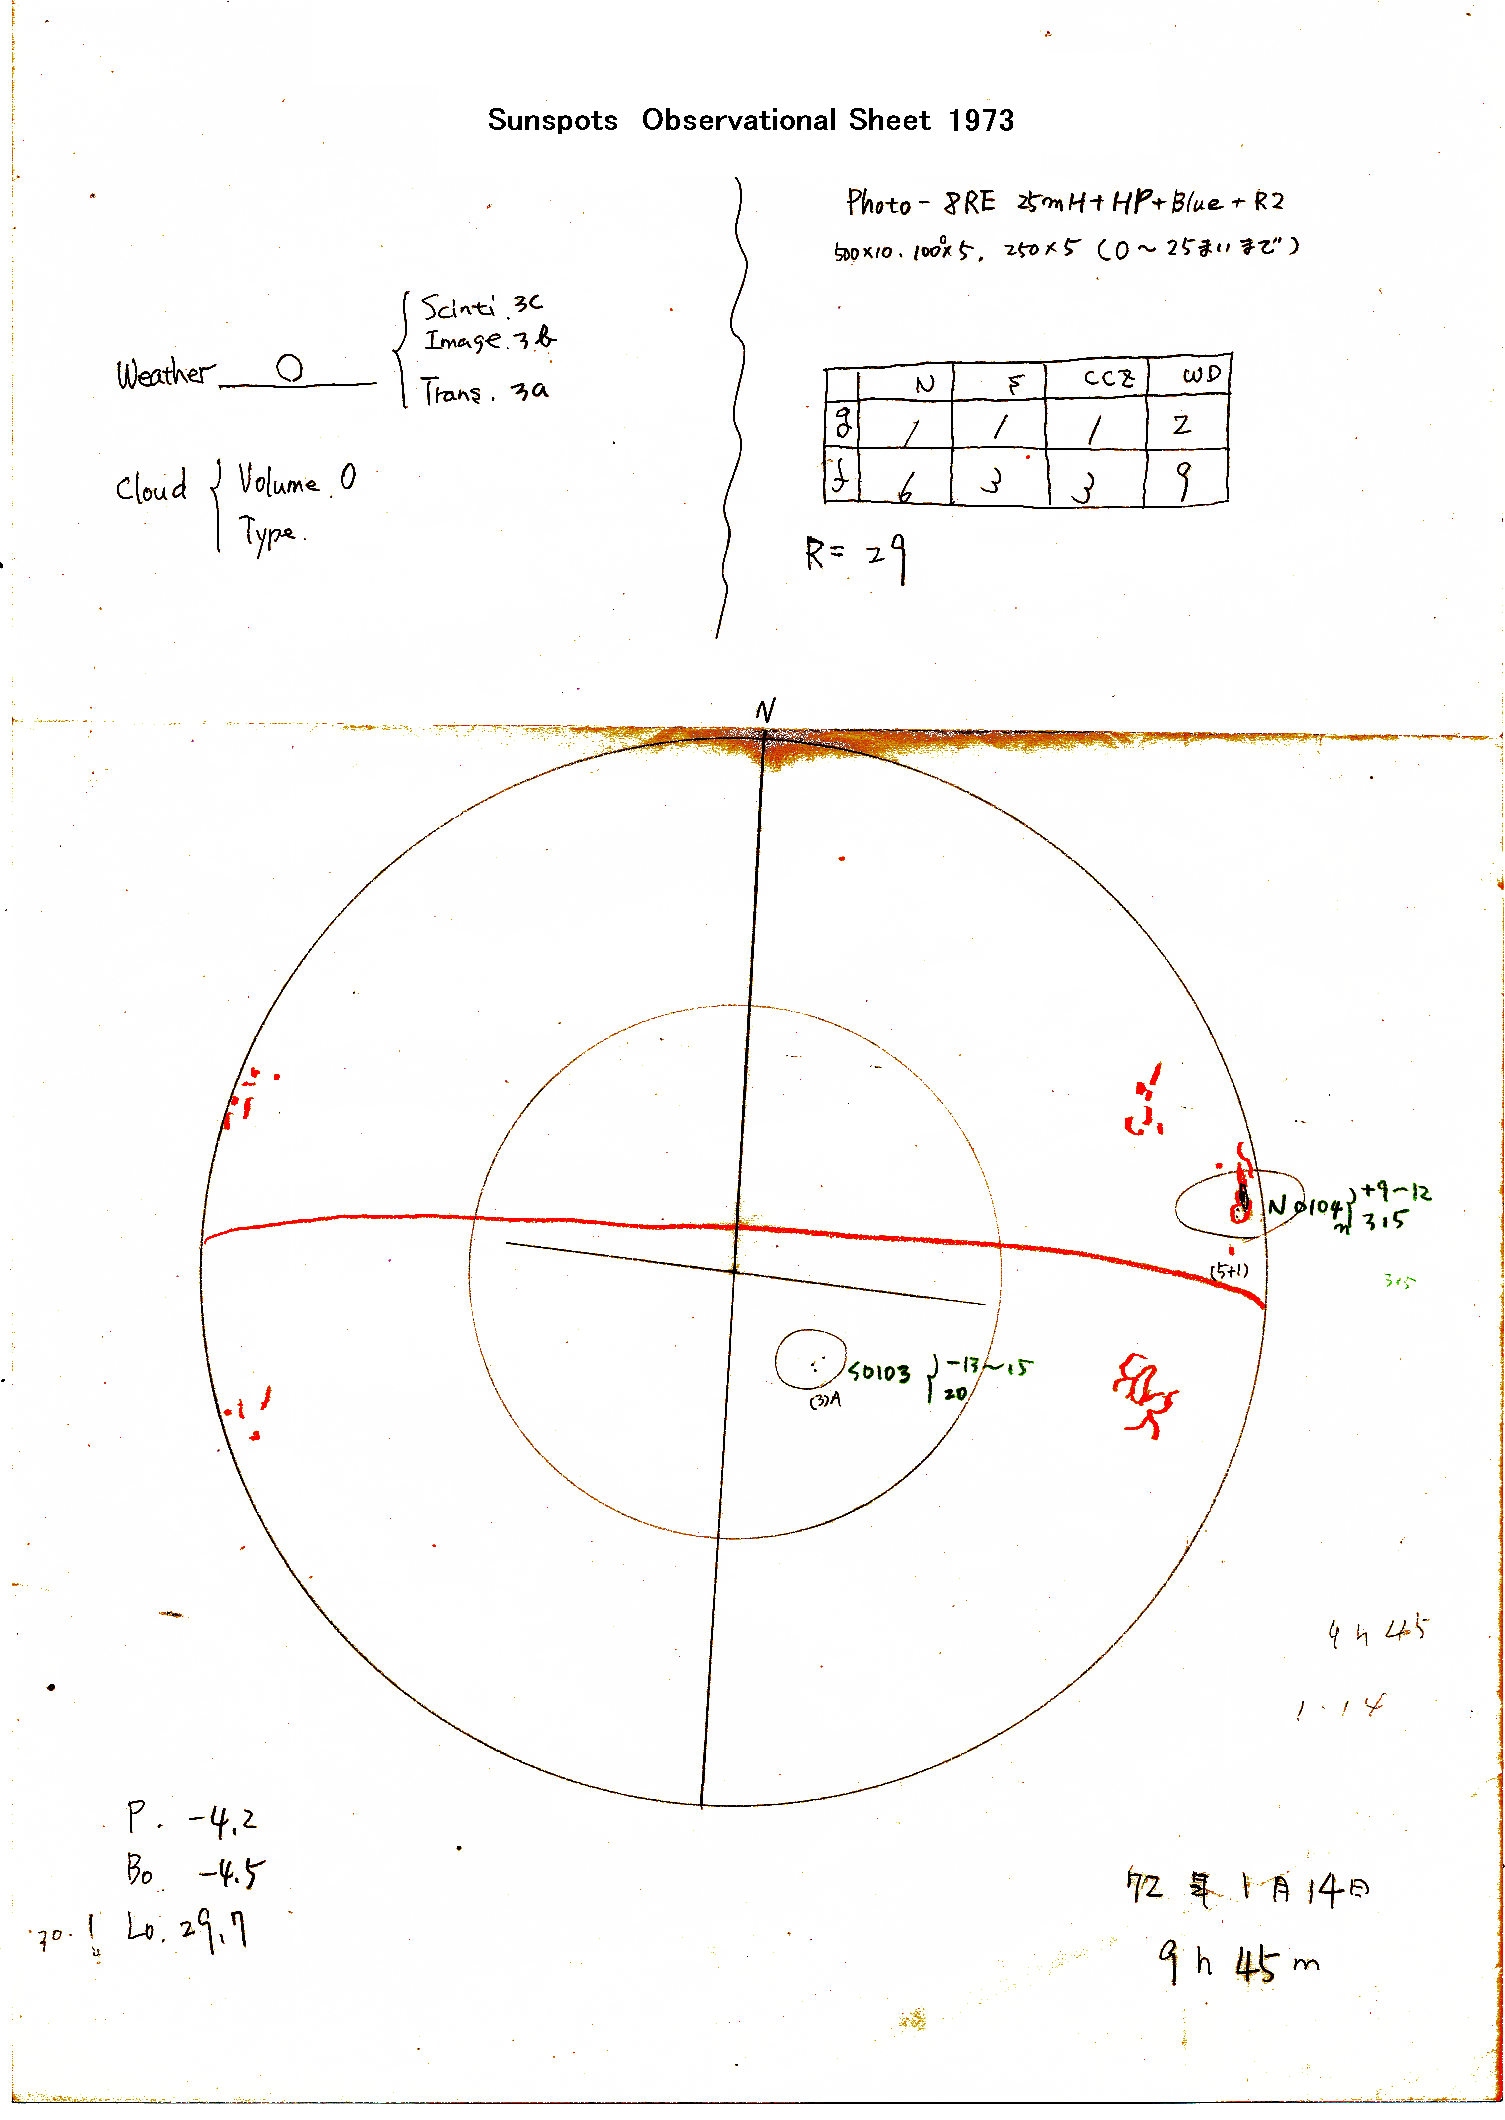 Sunspots Observational Sheet 1973
Photo - 8RE 25mH+HP+Blue+R2
500×10. 1000×5. 250×5 (0~25まいまで)
Weather O
Scinti. 3c
Image. 3b
Trans. 3a
Cloud
Volume. 0
Type.
N S CCZ WD
g 1 1 1 2
f 6 3 3 9
R= 29
N
N0104 +9-12
315
(5+1)
315
S0103 -13~15
20
(3)A
9h45
1.14
P. -4.2
Bo -4.5
30.1 Lo. 29.7
72年1月14日
9h 45m